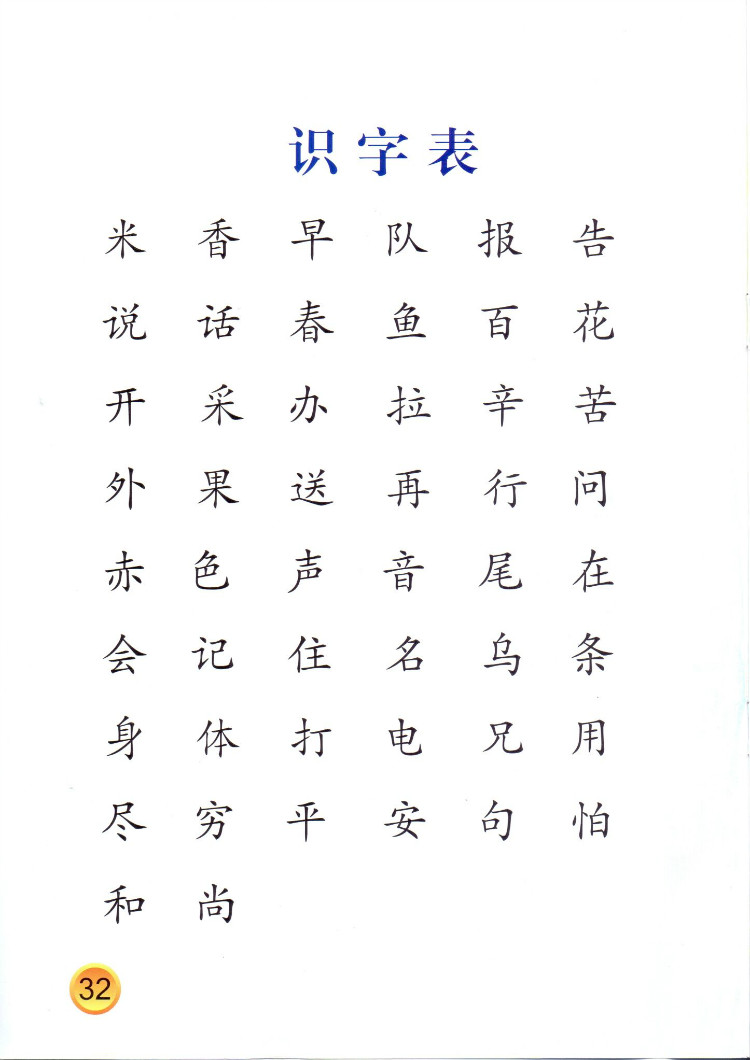 识字表
米 香 早 队 报 告
说 话 春 鱼 百 花
开 采 办 拉 辛 苦
外 果 送 再 行 问
赤 色 声 音 尾 在
会 记 住 名 乌 条
身 体 打 电 兄 用
尽 穷 平 安 句 怕
和 尚
32